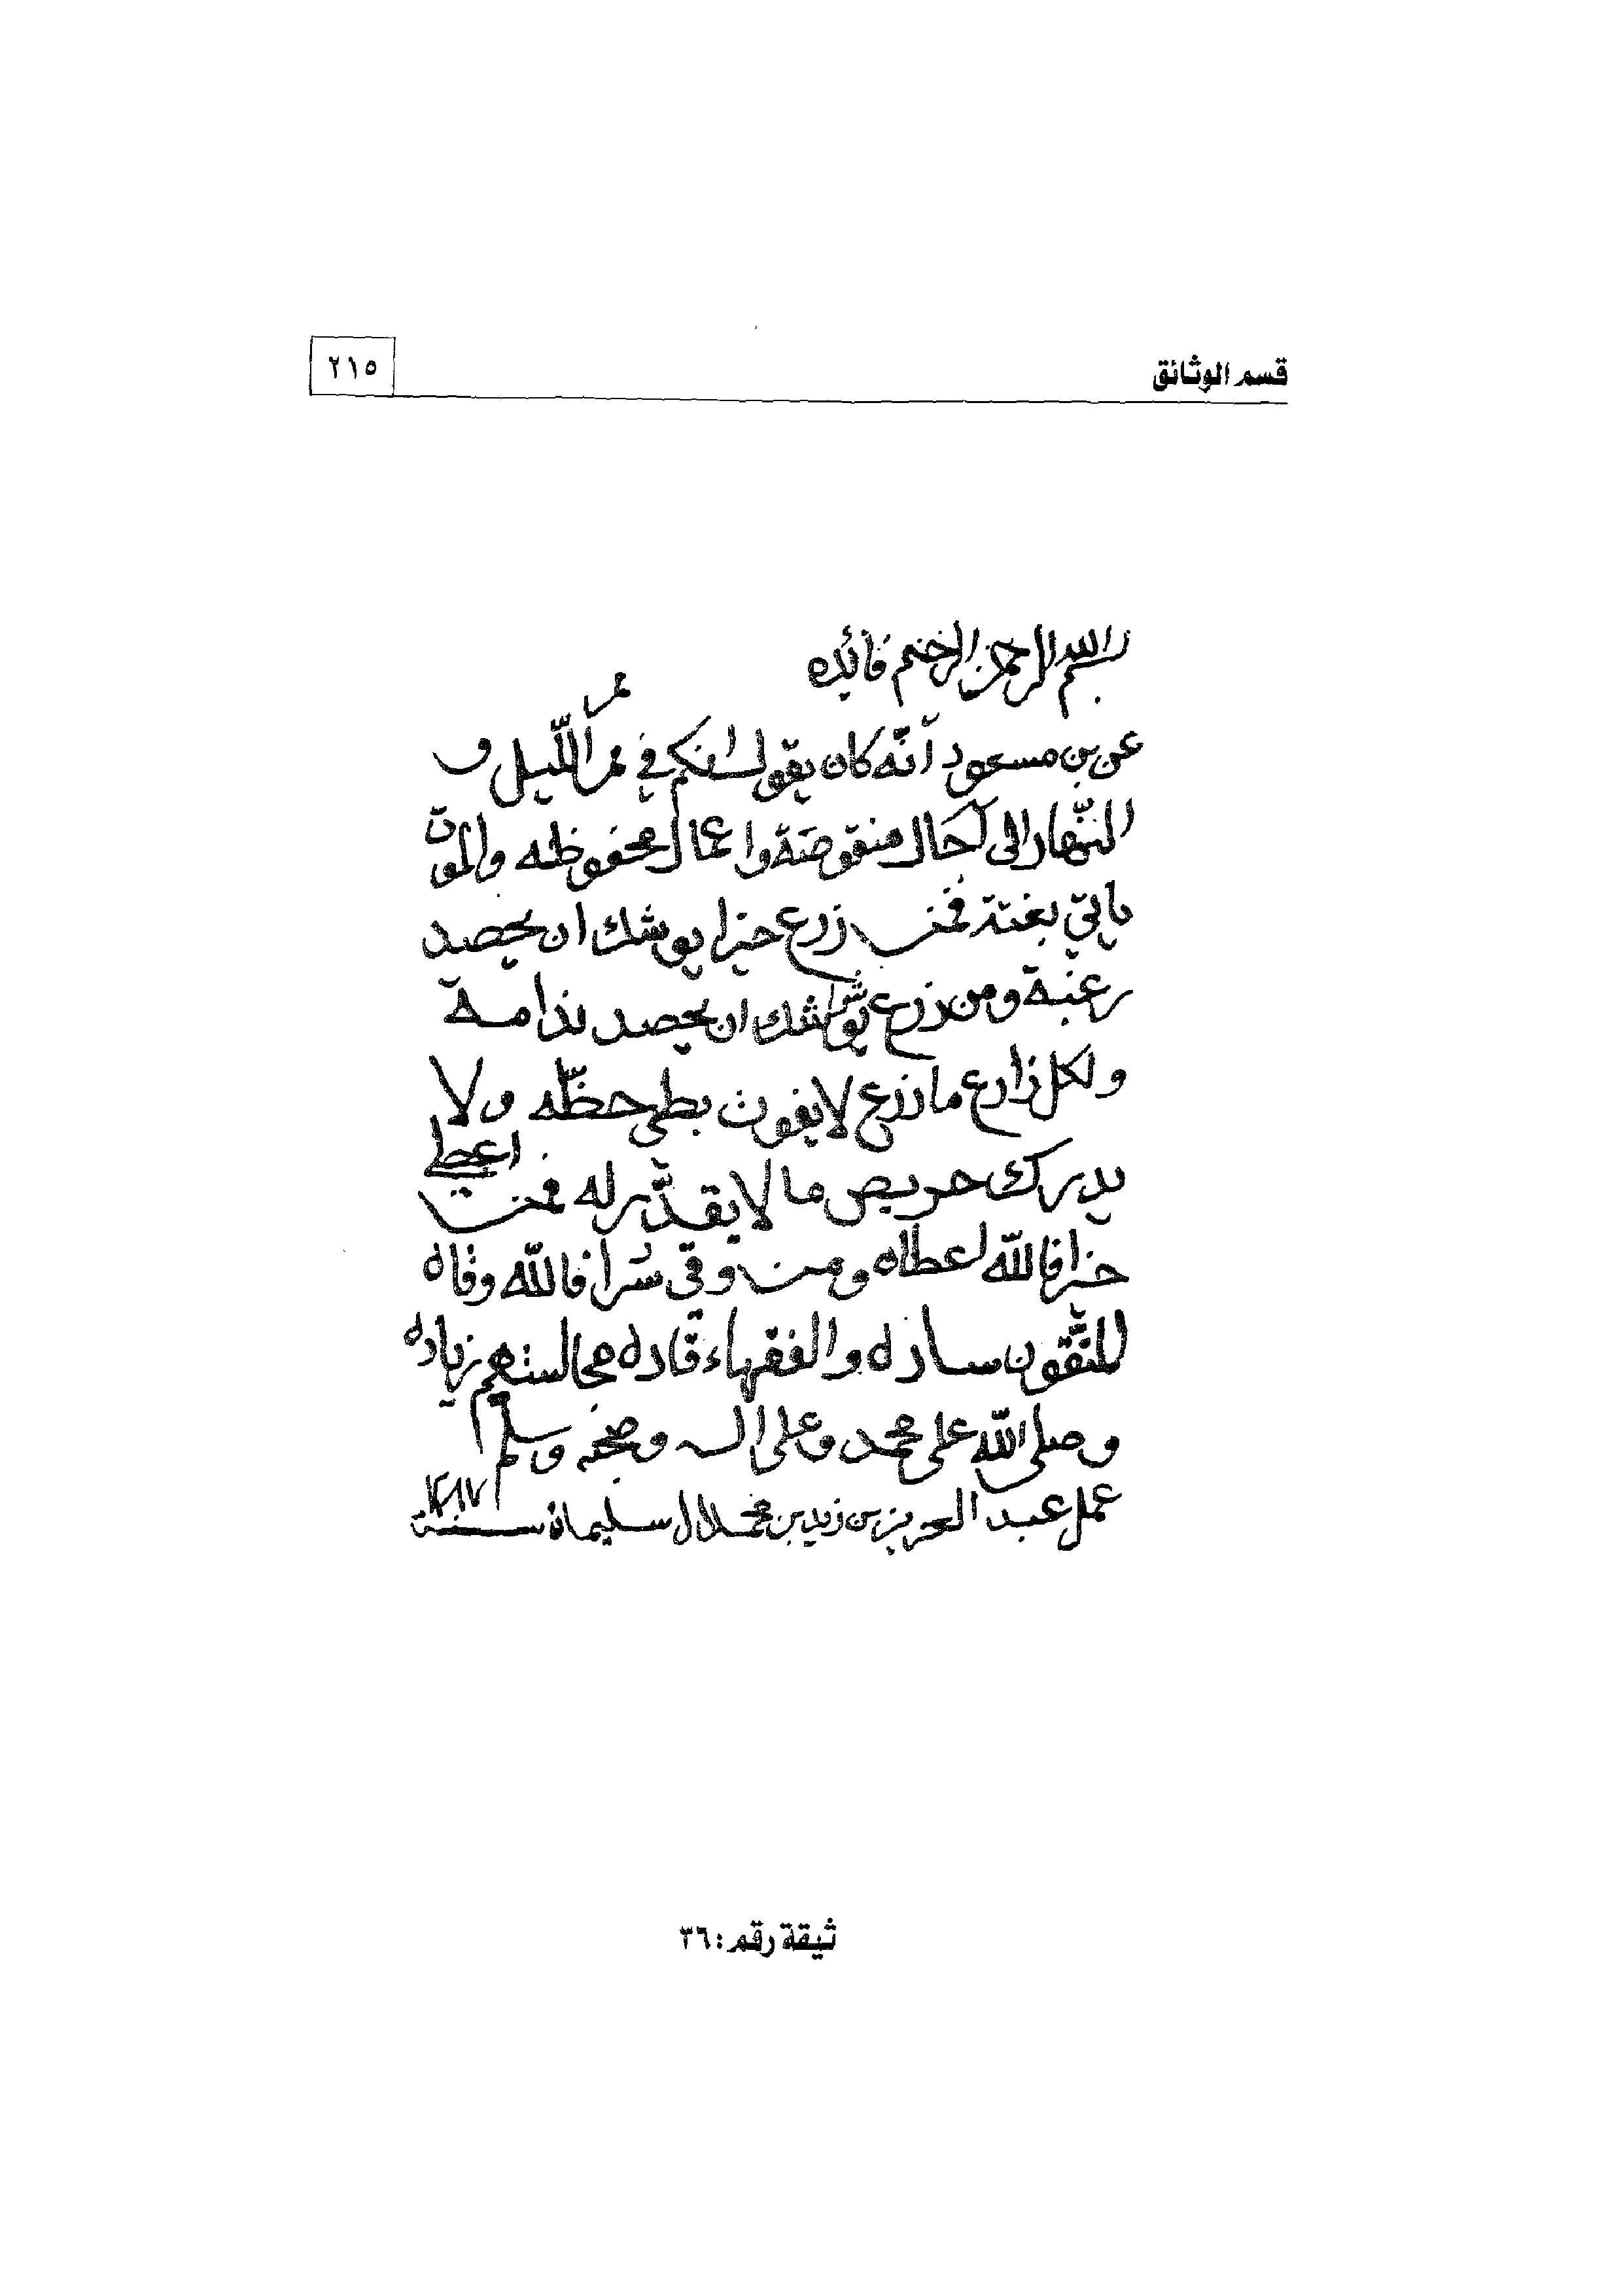 قسم الوثائق
٢١٥
بسم الله الرحمن الرحيم فائده
عن بن مسعود أنّه كان يقول انكم في ممر اللّيل و
النّهار الى آجال منقوصة واعمال محفوظه والموت
ياتي بغتة فمن زرع خيرا يوشك ان يحصد
رغبة ومن زرع شر يوشك ان يحصد ندامة
ولكل زارع ما زرع لا يفوت بطي حظّه ولا
يدرك حريص ما لا يقدّر له فمن اعطي
خيرا فاللّه اعطاه ومن وقي شرا فاللّه وقاه
المتّقون ساده والفقهاء قاده مجالستهم زياده
وصلى اللّه على محمد وعلى اله وصحبه وسلم
عمل عبد العزيز بن زيد بن محمد ال سليمان سنة
ثيقة رقم: ٣٦